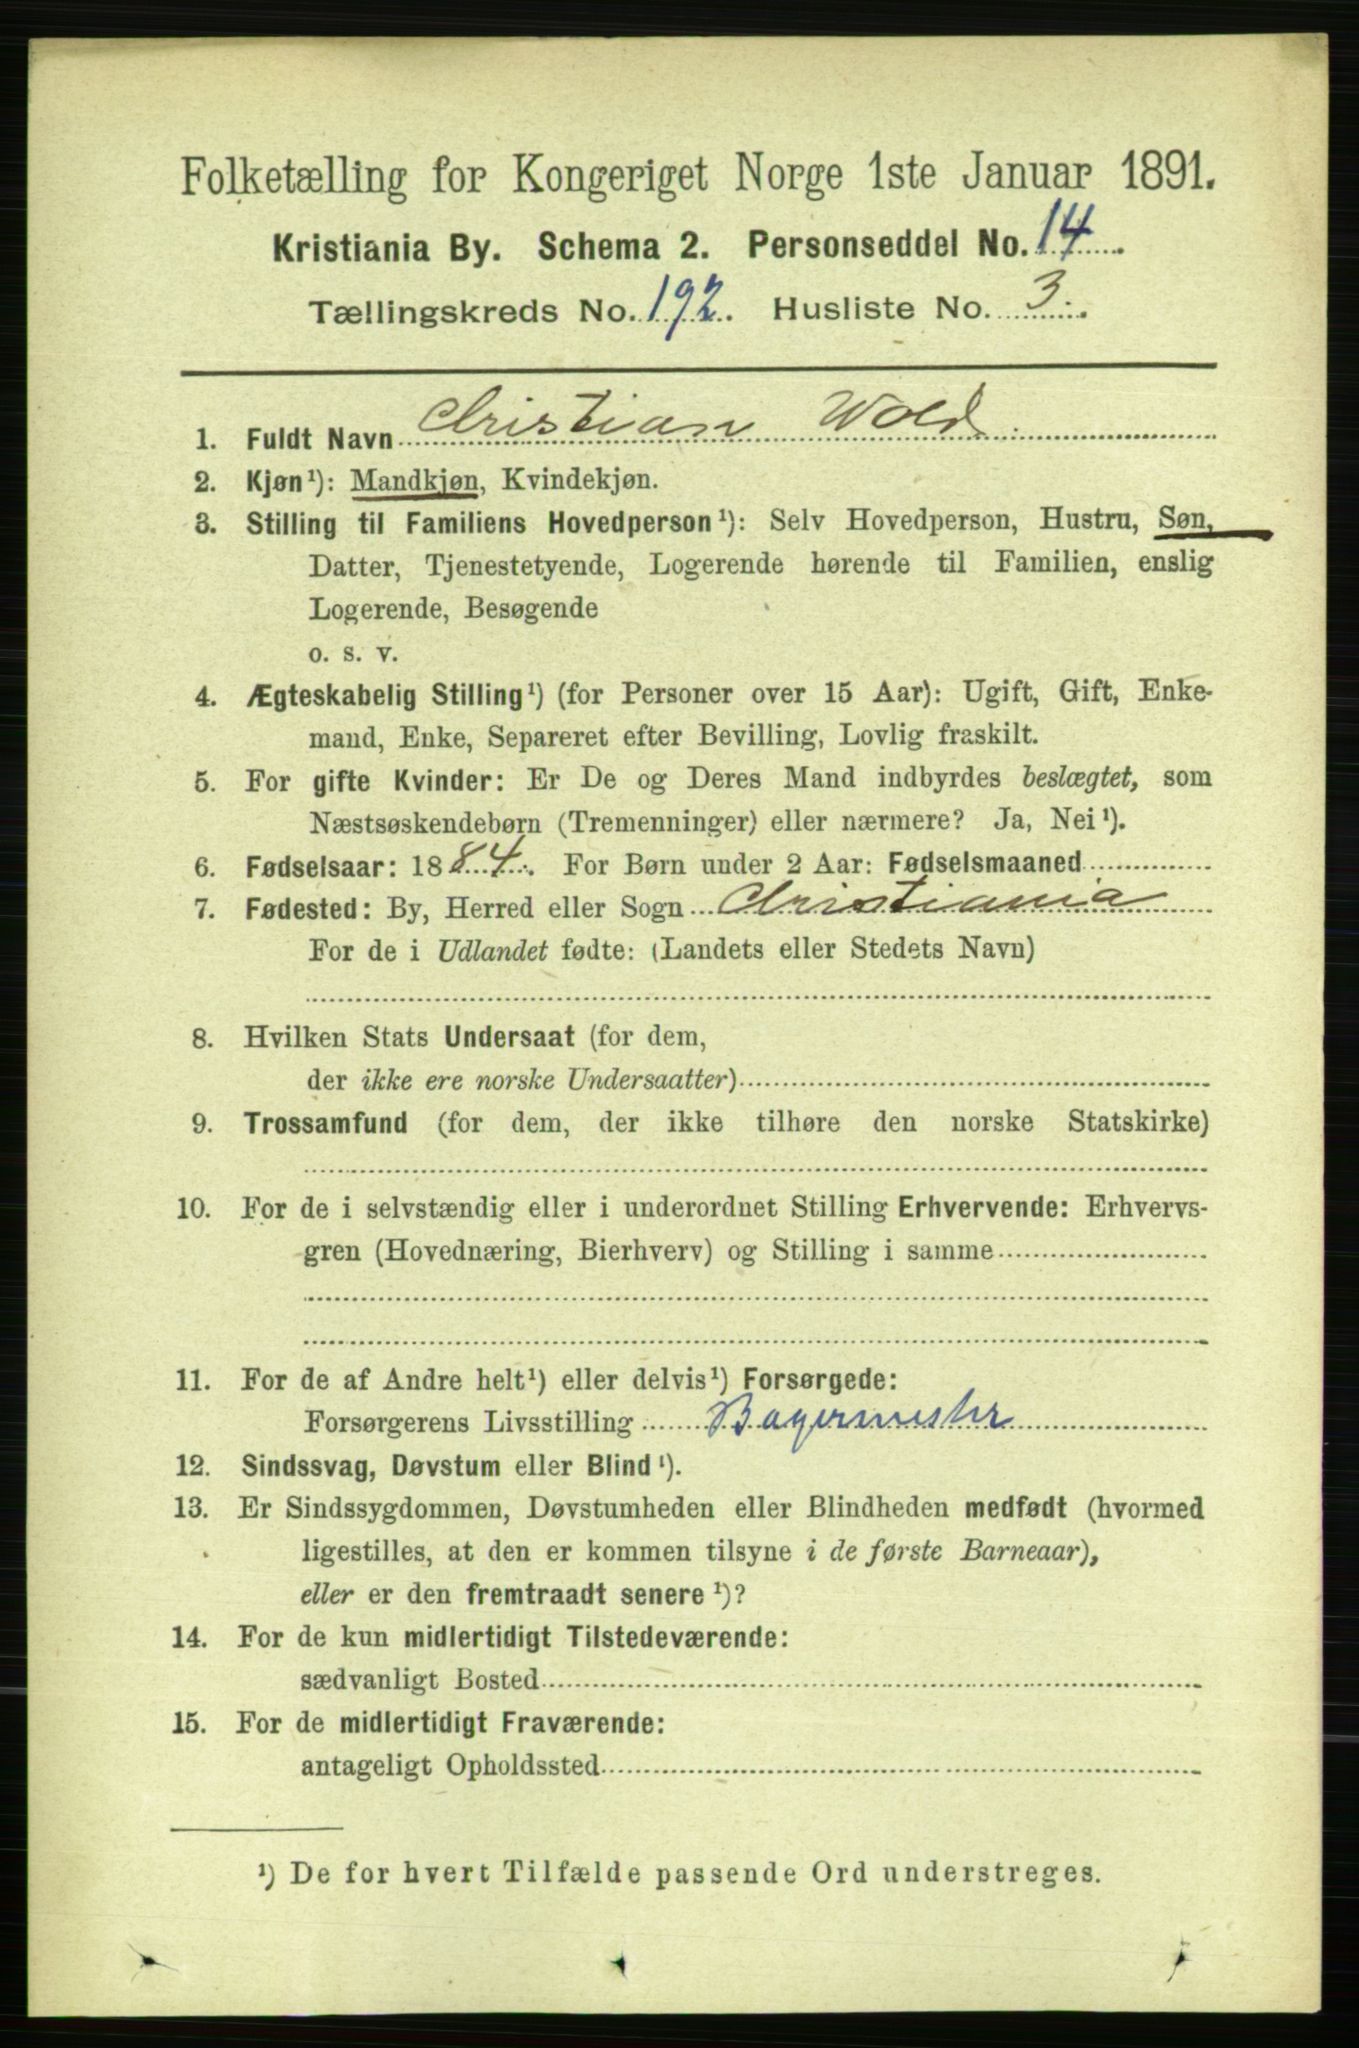 Folketælling for Kongeriget Norge 1ste Januar 1891.
Kristiania By. Schema 2. Personseddel No. 14.
Tællingskreds No. 192. Husliste No. 3.
1. Fuldt Navn Christian Wold
2. Kjøn¹): Mandkjøn, Kvindekjøn.
3. Stilling til Familiens Hovedperson¹): Selv Hovedperson, Hustru, Søn,
Datter, Tjenestetyende, Logerende hørende til Familien, enslig
Logerende, Besøgende
o. s. v.
4. Ægteskabelig Stilling¹) (for Personer over 15 Aar): Ugift, Gift, Enke-
mand, Enke, Separeret efter Bevilling, Lovlig fraskilt.
5. For gifte Kvinder: Er De og Deres Mand indbyrdes beslægtet, som
Næstsøskendebørn (Tremenninger) eller nærmere? Ja, Nei¹).
6. Fødselsaar: 1884. For Børn under 2 Aar: Fødselsmaaned
7. Fødested: By, Herred eller Sogn Christiania
For de i Udlandet fødte: (Landets eller Stedets Navn)
8. Hvilken Stats Undersaat (for dem,
der ikke ere norske Undersaatter)
9. Trossamfund (for dem, der ikke tilhøre den norske Statskirke)
10. For de i selvstændig eller i underordnet Stilling Erhvervende: Erhvervs-
gren (Hovednæring, Bierhverv) og Stilling i samme
11. For de af Andre helt¹) eller delvis¹) Forsørgede:
Forsørgerens Livsstilling Bagermester
12. Sindssvag, Døvstum eller Blind¹).
13. Er Sindssygdommen, Døvstumheden eller Blindheden medfødt (hvormed
ligestilles, at den er kommen tilsyne i de første Barneaar),
eller er den fremtraadt senere¹)?
14. For de kun midlertidigt Tilstedeværende:
sædvanligt Bosted
15. For de midlertidigt Fraværende:
antageligt Opholdssted
¹) De for hvert Tilfælde passende Ord understreges.